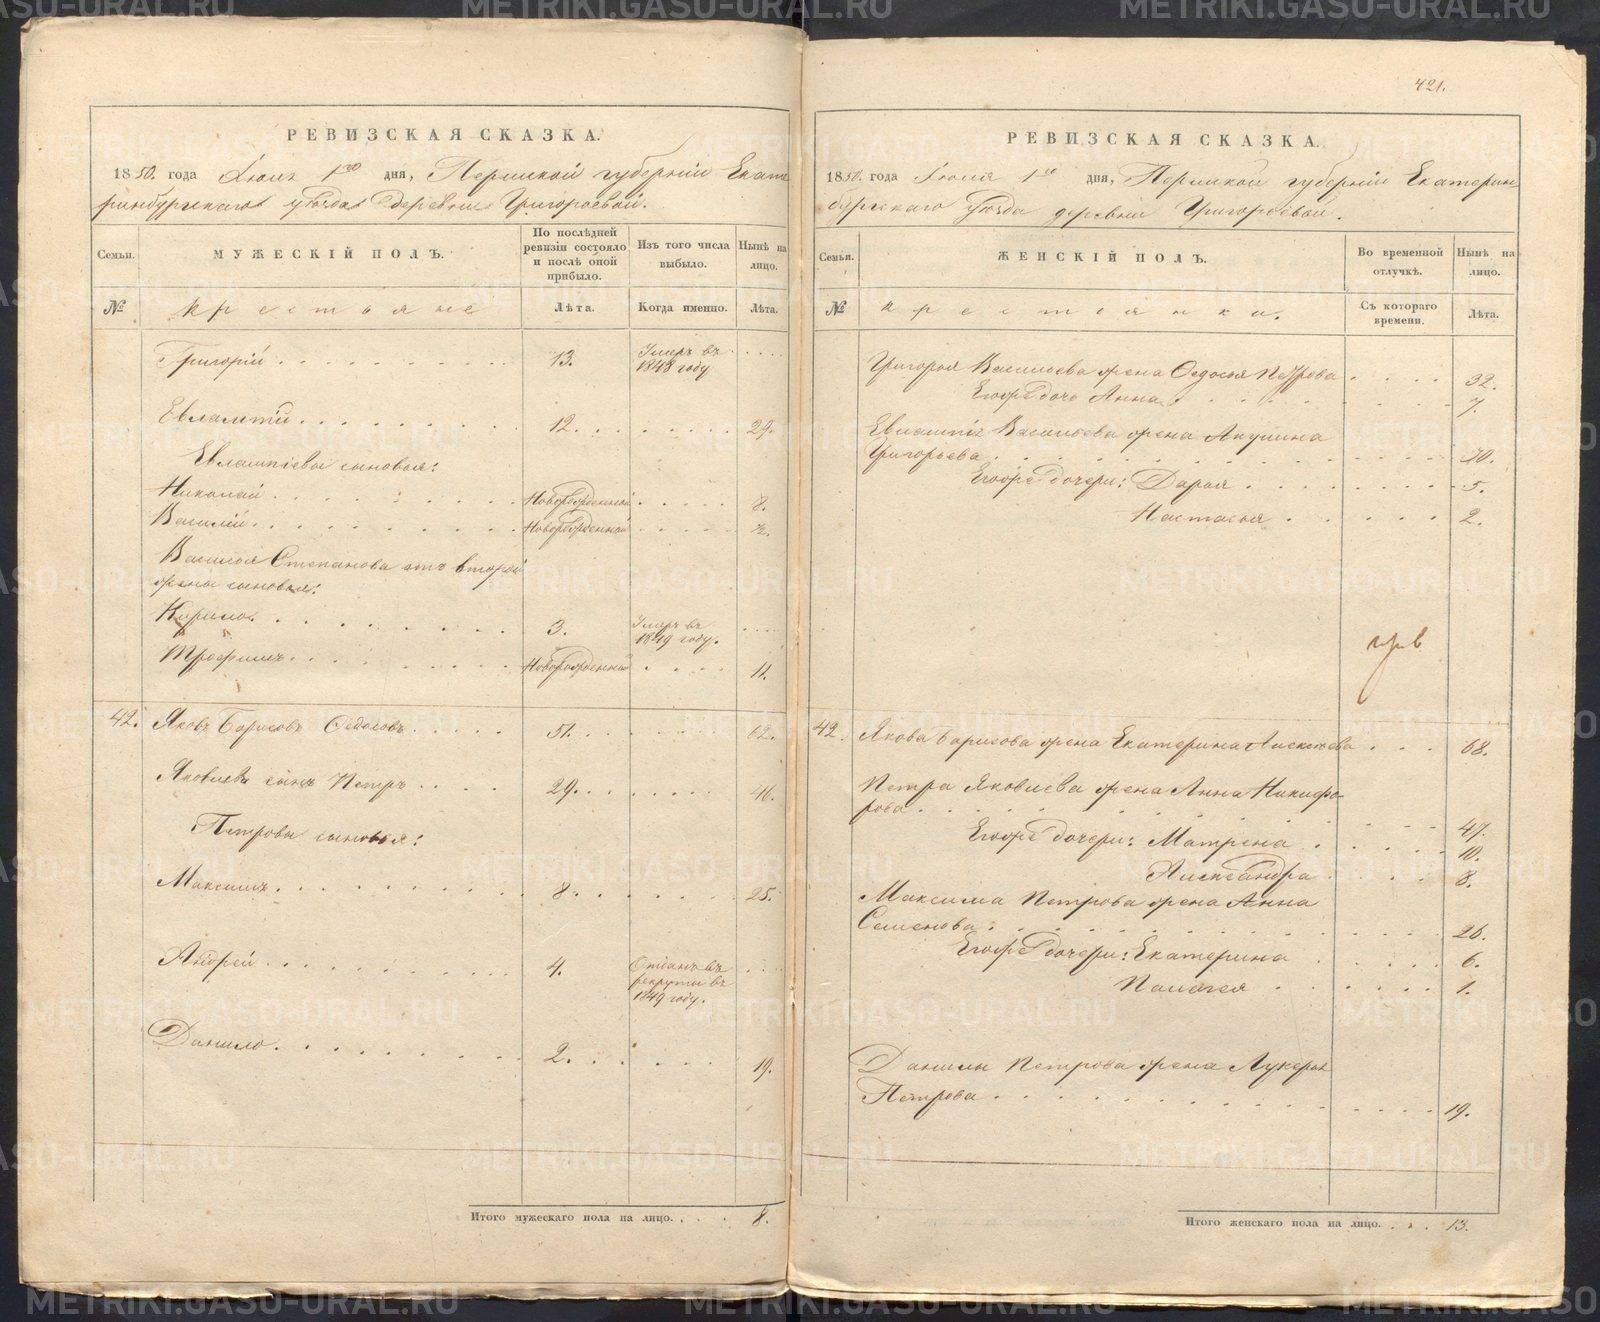 РЕВИЗСКАЯ СКАЗКА.
1850. года Июня 1го дня, Пермской губерніи Екате
ринбургскаго уѣзда деревни Григорьевой.
Семьи.
МУЖЕСКІЙ ПОЛЪ.
По послѣдней ревизіи состояло и послѣ оной прибыло.
Изъ того числа выбыло.
Нынѣ на лицо.
№
крестьяне
Лѣта.
Когда именно.
Лѣта.
Григорій 13. Умеръ въ 1848 году
Евлампій 12. 29.
Евлампіевы сыновья:
Николай Новорожденный 8.
Василій Новорожденный
Василья Степанова отъ второй
жены сыновья:
Кирило 3. Умеръ въ 1849 году.
Трофимъ Новорожденный 11.
42. Яковъ Борисовъ Ѳедосовъ 51. 62.
Яковлевъ сынъ Петръ 29. 46.
Петровы сыновья:
Максимъ 8. 25.
Андрей 4. Отданъ въ рекруты въ 1849 году.
Данило 2. 19.
Итого мужескаго пола на лицо. 8.
421.
РЕВИЗСКАЯ СКАЗКА.
1850. года Июня 1го дня, Пермской губерніи Екатерин
бургскаго уѣзда деревни Григорьевой.
Семьи.
ЖЕНСКІЙ ПОЛЪ.
Во временной отлучкѣ.
Нынѣ на лицо.
№
крестьянки.
Съ котораго времени.
Лѣта.
Григорья Васильева жена Ѳедосья Петрова 32.
Егоже дочь Анна 7.
Евлампія Васильева жена Акулина
Григорьева 30.
Егоже дочери: Дарья 5.
Настасья 2.
42. Якова Борисова жена Екатерина Алексѣева 68.
Петра Яковлева жена Анна Никифо-
рова 47.
Егоже дочери: Матрена 10.
Александра 8.
Максима Петрова жена Анна
Семенова 26.
Егоже дочери: Екатерина 6.
Палагея 1.
Данилы Петрова жена Лукерья
Петрова 19.
Итого женскаго пола на лицо. 13.
METRIKI.GASO-URAL.RU